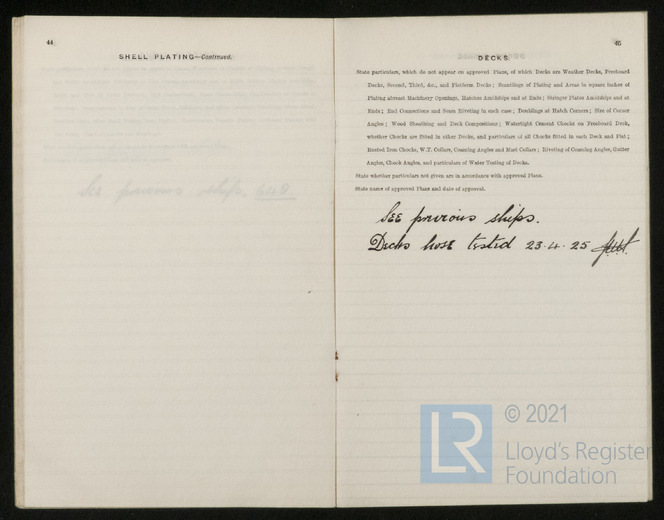 44
SHELL PLATING—Continued.
45
DECKS.
State particulars, which do not appear on approved Plans, of which Decks are Weather Decks, Freeboard
Decks, Second, Third, &c., and Platform Decks; Scantlings of Plating and Areas in square inches of
Plating abreast Machinery Openings, Hatches Amidships and at Ends; Stringer Plates Amidships and at
Ends; End Connections and Seam Riveting in each case; Doublings at Hatch Corners; Size of Corner
Angles; Wood Sheathing and Deck Compositions; Watertight Cement Chocks on Freeboard Deck,
whether Chocks are fitted in other Decks, and particulars of all Chocks fitted in each Deck and Flat;
Rusted Iron Chocks, W.T. Collars, Coaming Angles and Mast Collars; Riveting of Coaming Angles, Gutter
Angles, Chock Angles, and particulars of Water Testing of Decks.
State whether particulars not given are in accordance with approved Plans.
State name of approved Plans and date of approval.
SEE previous ships.
Decks hose tested 23.4.25
LR
© 2021
Lloyd's Register
Foundation